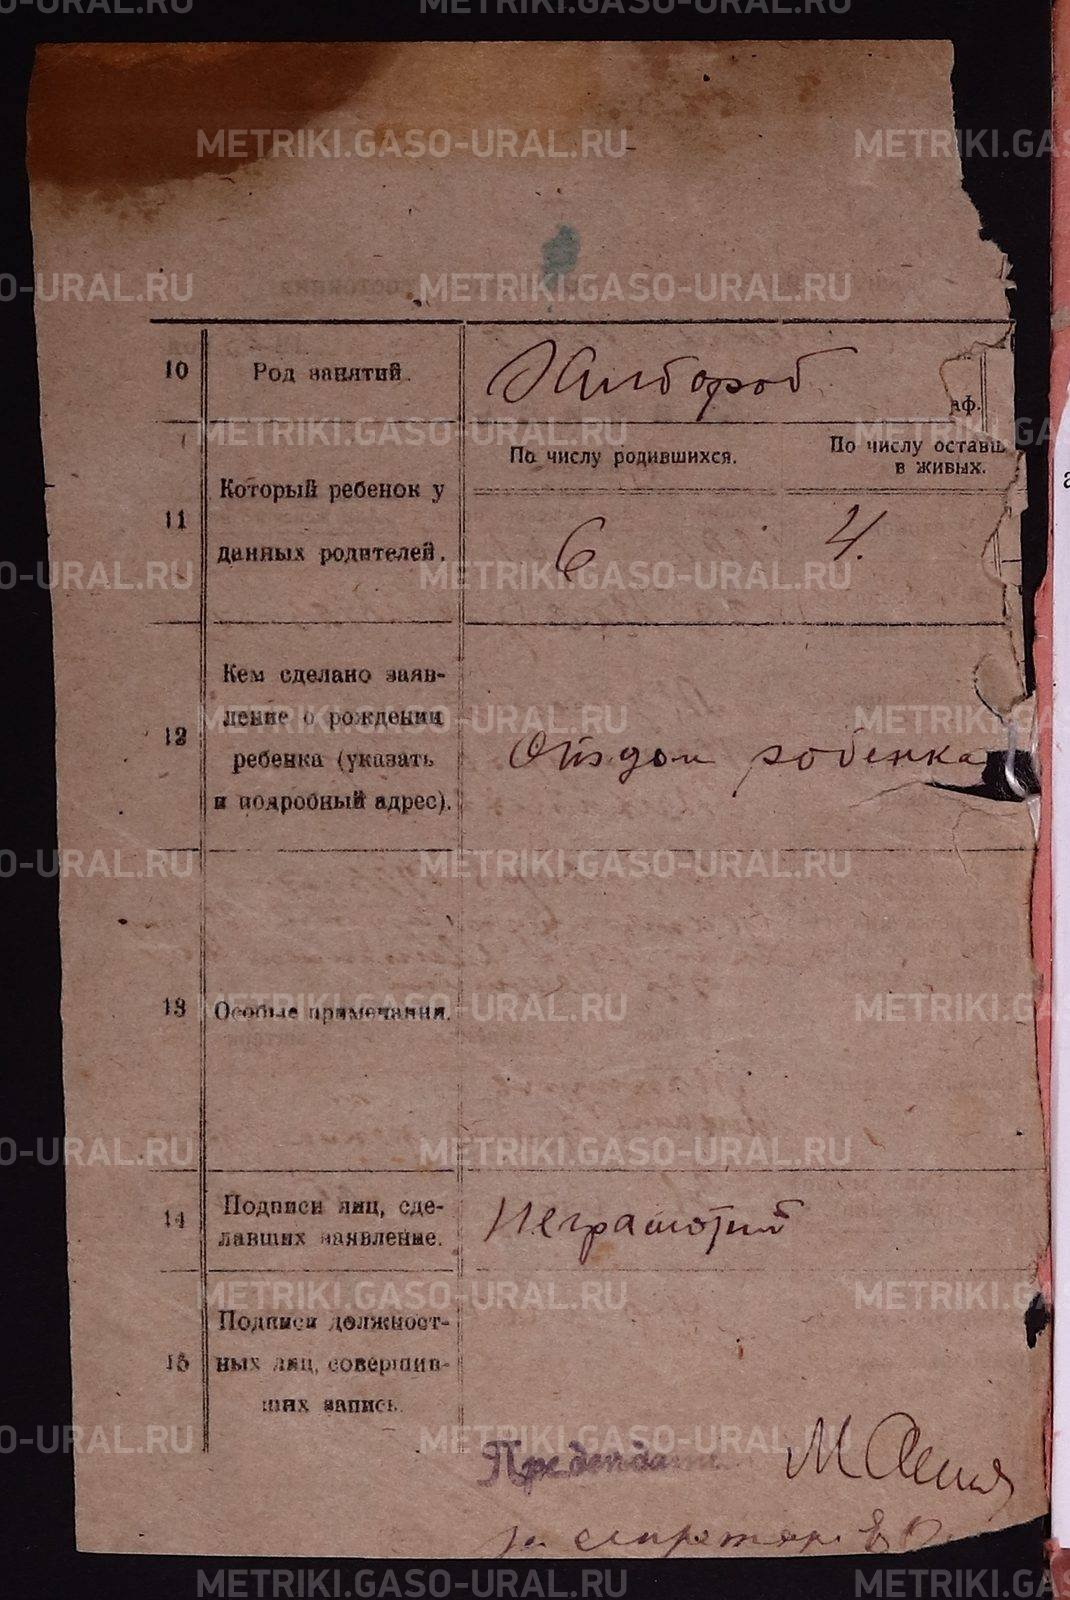 10 Род занятий. Хлебороб
аф.
11 Который ребенок у данных родителей.
По числу родившихся. По числу оставш
в живых.
6 4.
12 Кем сделано заяв-
ление о рождении
ребенка (указать
и подробный адрес).
Отздом робенка
13 Особые примечания.
14 Подписи лиц, сде-
лавших заявление.
Неграмотный
15 Подписи должност-
ных лиц, совершив-
ших запись.
Председатель М
за секретаря
METRIKI.GASO-URAL.RU